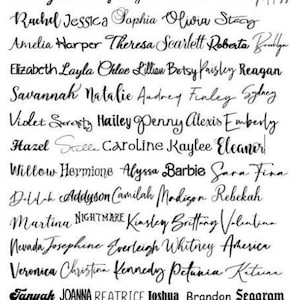 Rachel Jessica Sophia Olivia Stacy
Amelia Harper Theresa Scarlett Roberta Brooklyn
Elizabeth Layla Chloe Lillian Betsy Paisley Reagan
Savannah Natalie Audrey Finley Sydney
Violet Serenity Hailey Penny Alexis Emberly
Hazel Stella Caroline Kaylee Eleanor
Willow Hermione Alyssa Barbie Sara Tina
Delilah Addyson Camilah Madison Rebekah
Martina NIGHTMARE Kinsley Brittany Valentina
Nevada Josephine Everleigh Whitney America
Veronica Christina Kennedy Petunia Katrina
Tanyah JOANNA BEATRICE Joshua Brandon Seagram